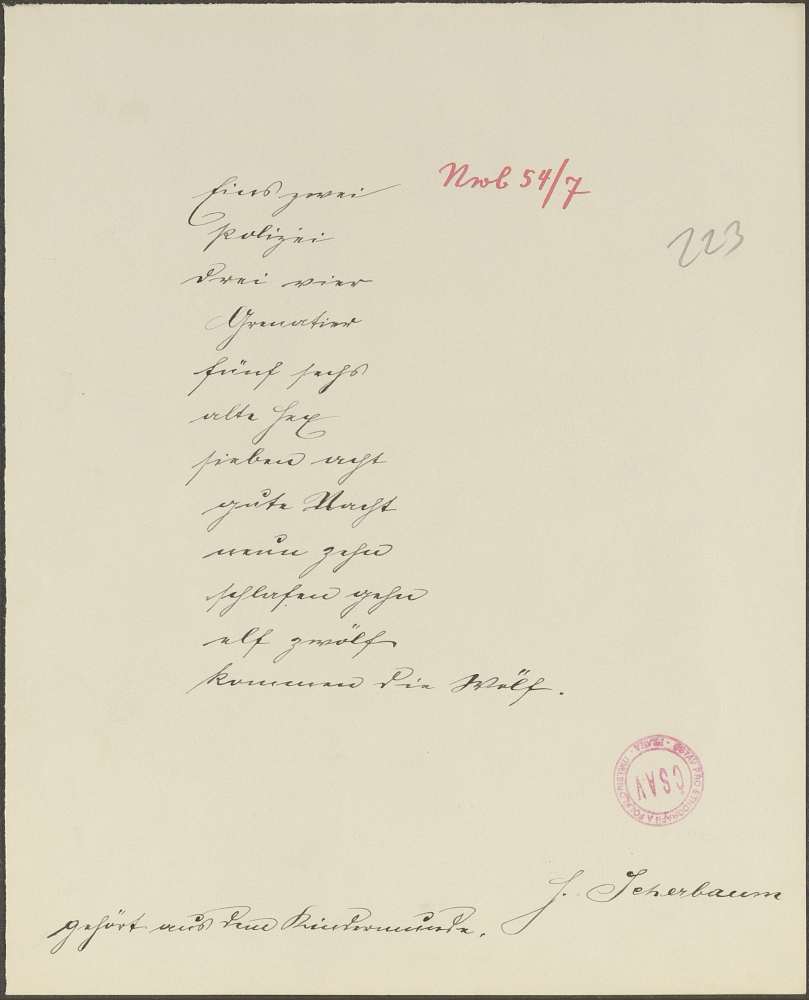 Nwb 54/7
223
Eins zwei
Polizei
drei vier
Grenatier
fünf sechs
alte Hex
sieben acht
gute Nacht
neun zehn
schlafen gehn
elf zwölf
kommen die Wölf.
ÚSTAV PRO ETNOGRAFII A FOLKLORISTIKU · PRAHA ·
ČSAV
H. Scherbaum
gehört aus dem Kindermunde.